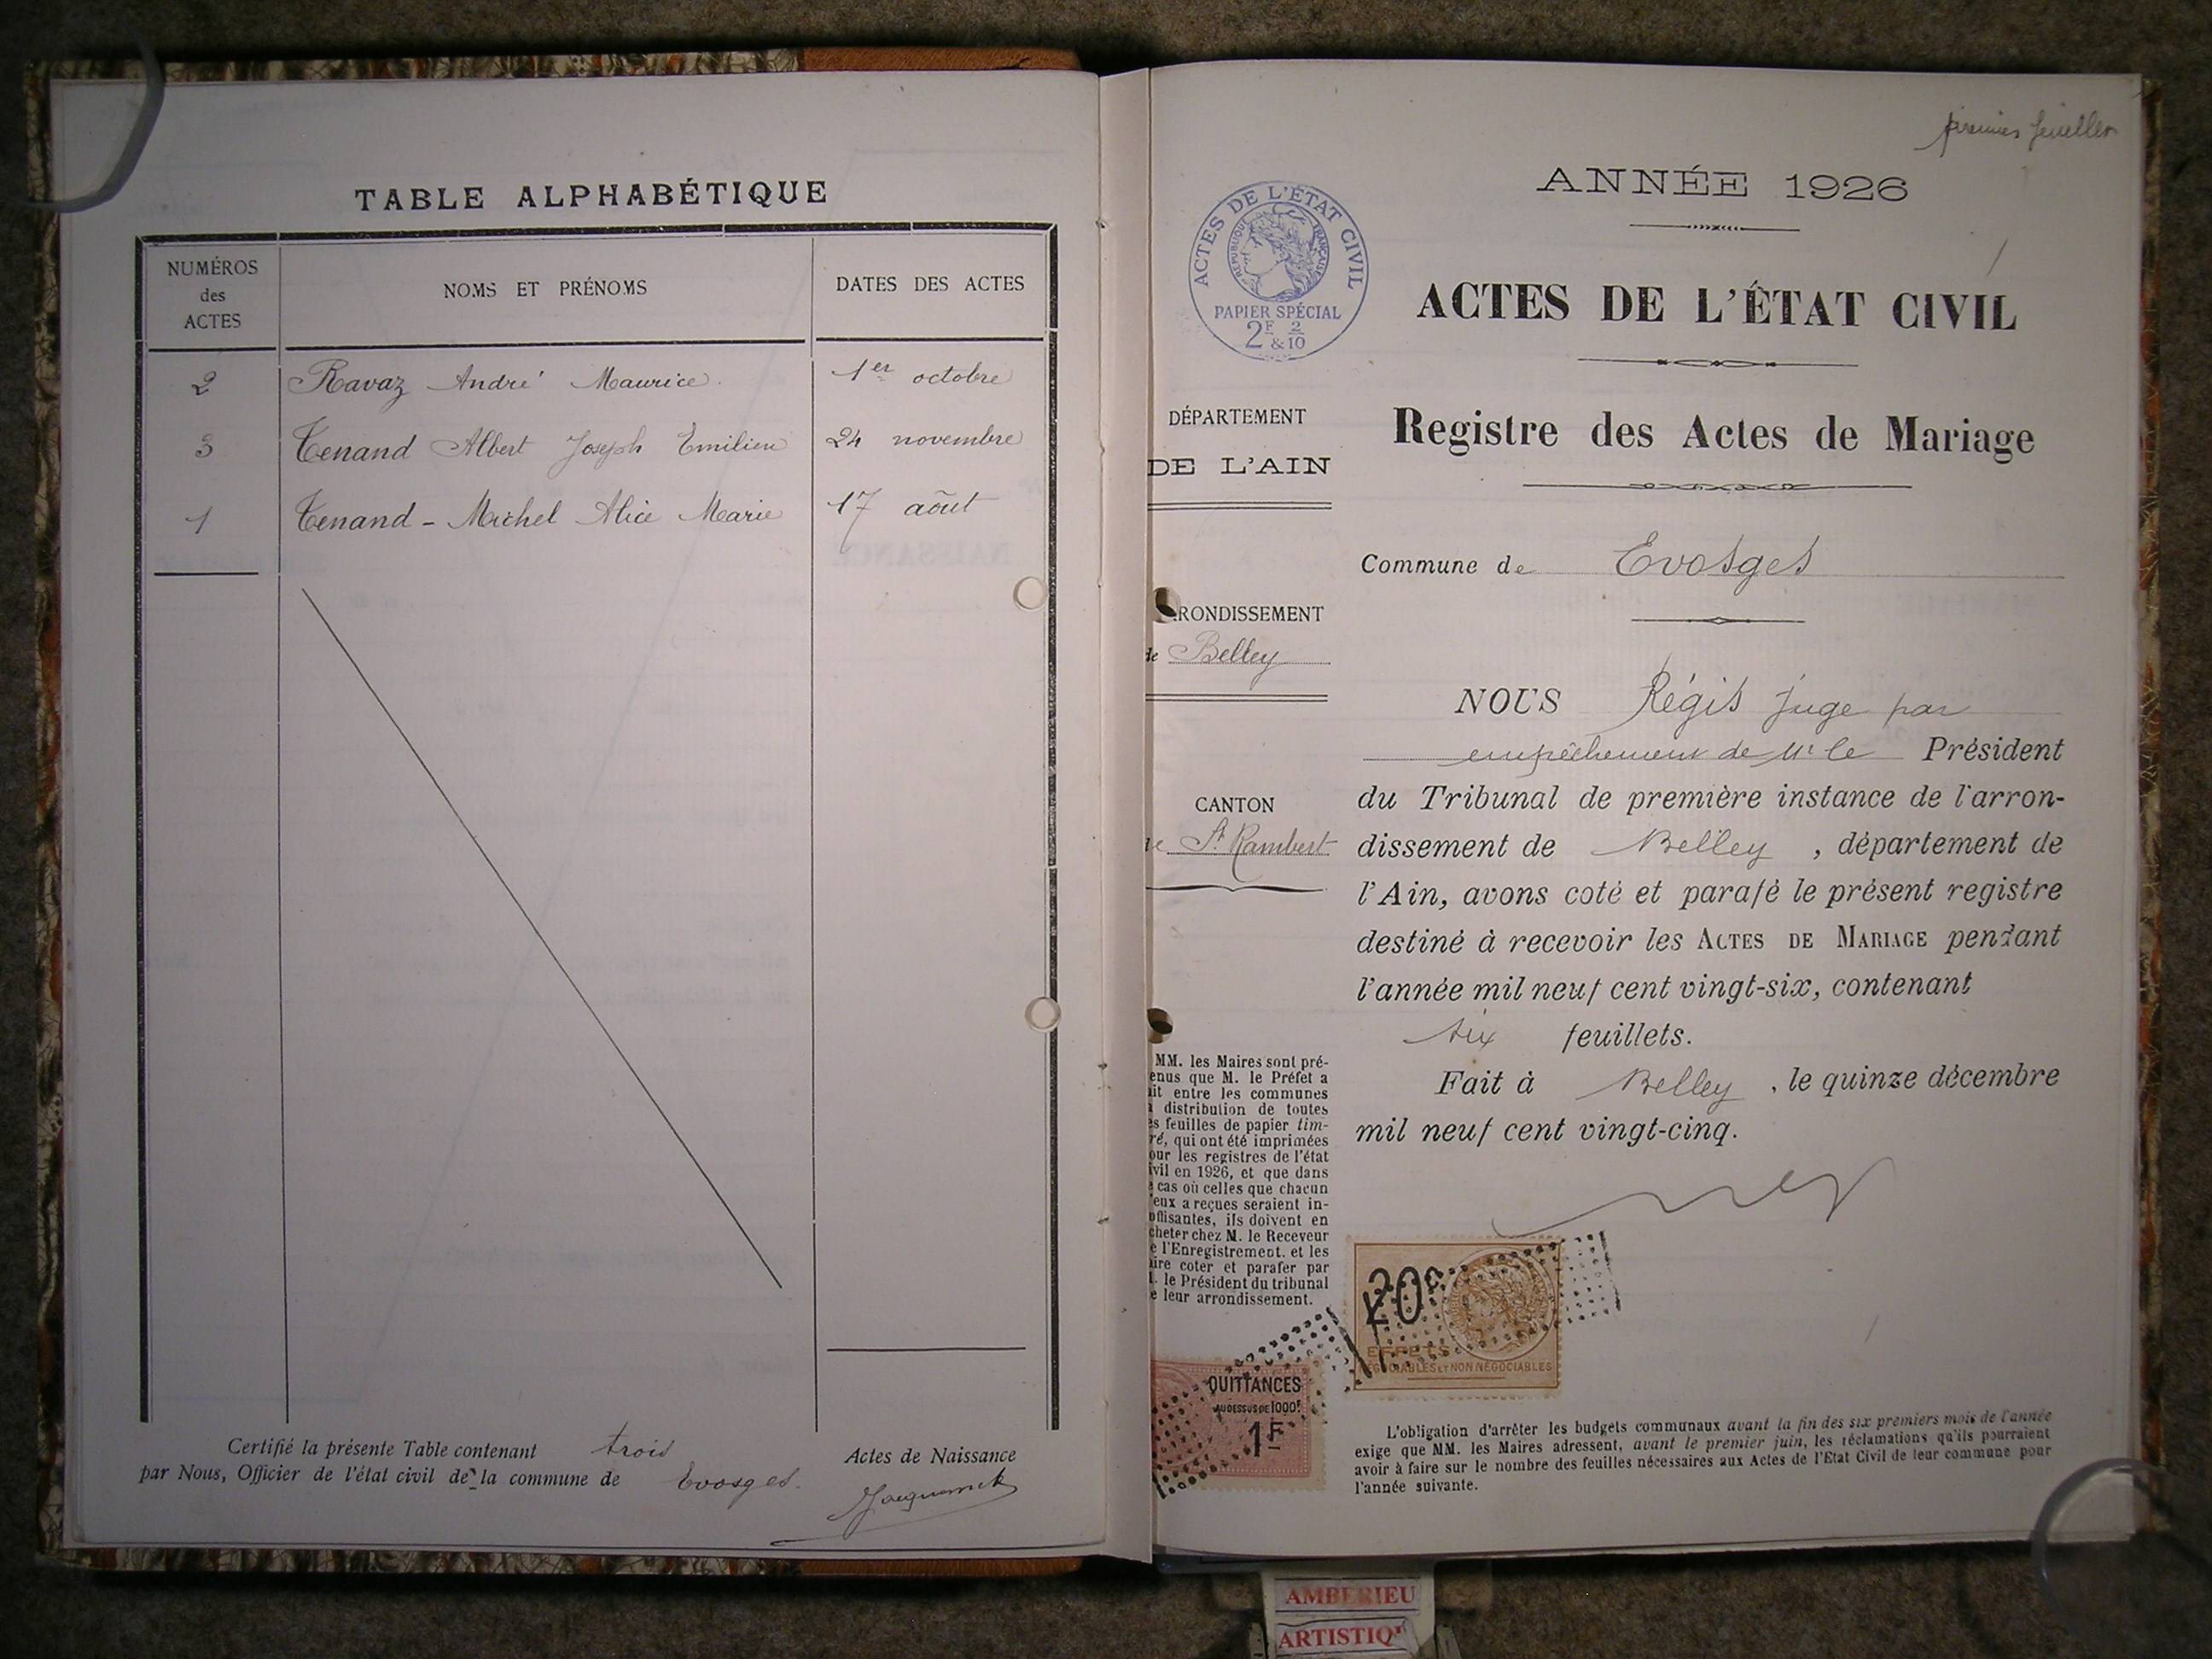 TABLE ALPHABÉTIQUE
NUMÉROS
des
ACTES
NOMS ET PRÉNOMS
DATES DES ACTES
2 Ravaz André Maurice. 1er octobre
3 Tenand Albert Joseph Emilien 24 novembre
1 Tenand - Michel Alice Marie 17 août
Certifié la présente Table contenant trois Actes de Naissance
par Nous, Officier de l'état civil de la commune de Evosges.
premier feuillet
ANNÉE 1926
ACTES DE L'ÉTAT CIVIL
RÉPUBLIQUE FRANÇAISE
PAPIER SPÉCIAL
2F & 2/10
ACTES DE L'ÉTAT CIVIL
Registre des Actes de Mariage
DÉPARTEMENT
DE L'AIN
Commune de Evosges
RONDISSEMENT
de Belley
CANTON
de St Rambert
NOUS Régis juge par
empêchement de Mr le Président
du Tribunal de première instance de l'arron-
dissement de Belley, département de
l'Ain, avons coté et parafé le présent registre
destiné à recevoir les ACTES DE MARIAGE pendant
l'année mil neuf cent vingt-six, contenant
six feuillets.
Fait à Belley, le quinze décembre
mil neuf cent vingt-cinq.
MM. les Maires sont pré-
enus que M. le Préfet a
ait entre les communes
a distribution de toutes
es feuilles de papier tim-
ré, qui ont été imprimées
our les registres de l'état
ivil en 1926, et que dans
e cas où celles que chacun
'eux a reçues seraient in-
uffisantes, ils doivent en
cheter chez M. le Receveur
e l'Enregistrement. et les
aire coter et parafer par
. le Président du tribunal
e leur arrondissement.
20c
EFFETS
NÉGOCIABLES ET NON NÉGOCIABLES
QUITTANCES
AU DESSUS DE 1000F
1F
L'obligation d'arrêter les budgets communaux avant la fin des six premiers mois de l'année
exige que MM. les Maires adressent, avant le premier juin, les réclamations qu'ils pourraient
avoir à faire sur le nombre des feuilles nécessaires aux Actes de l'Etat Civil de leur commune pour
l'année suivante.
AMBERIEU
ARTISTIQ